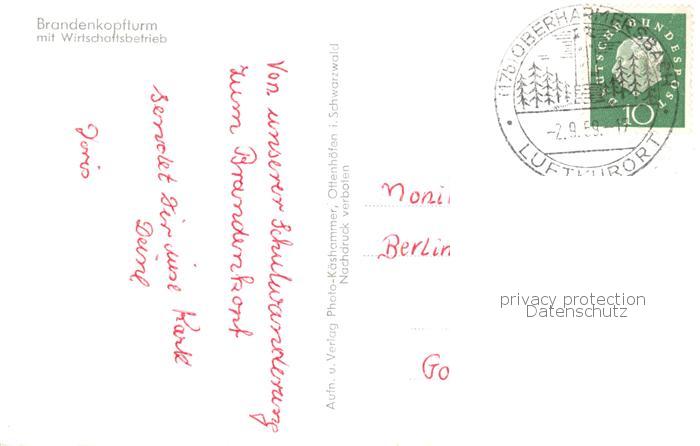 Brandenkopfturm
mit Wirtschaftsbetrieb
Von unserer Schulwanderung
zum Brandenkopf
sendet Dir eine Kart
Deine
Doris
Aufn. u. Verlag Photo-Käshammer, Ottenhöfen i. Schwarzwald
Nachdruck verboten
(17b) OBERHARMERSBACH
-2.9.59.-17
LUFTKURORT
DEUTSCHE BUNDESPOST
10
Moni
Berlin
Go
privacy protection
Datenschutz